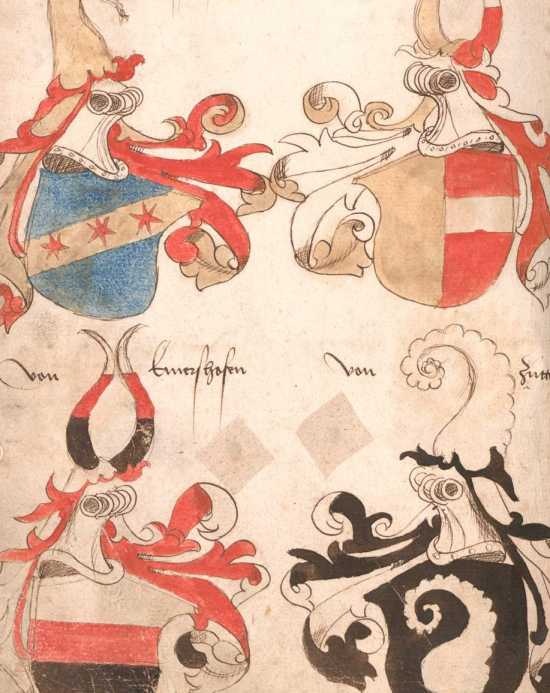 von Emershofen
von Zutt